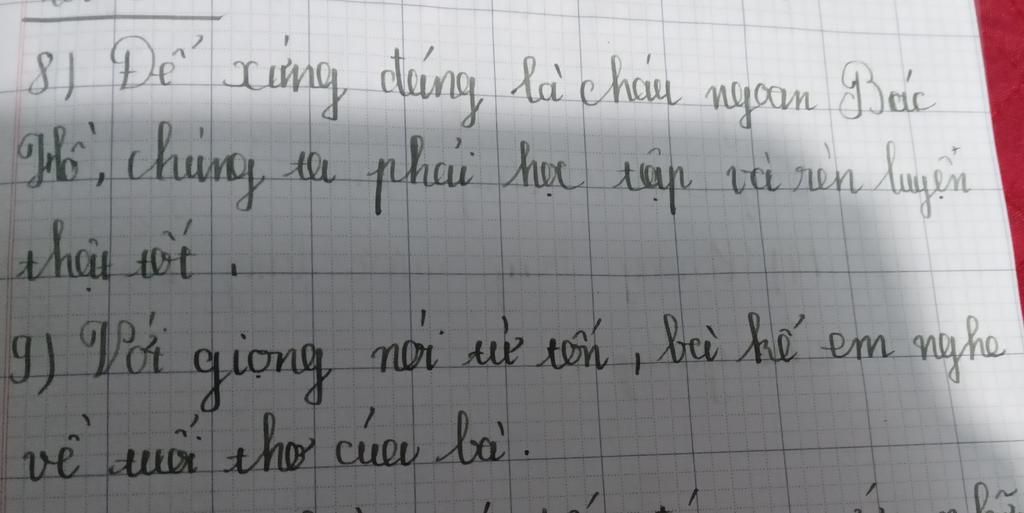 8) Để xứng đáng là cháu ngoan Bác
Hồ, chúng ta phải học tập và rèn luyện
thật tốt.
9) Với giọng nói từ tốn, bà kể em nghe
về tuổi thơ của bà.